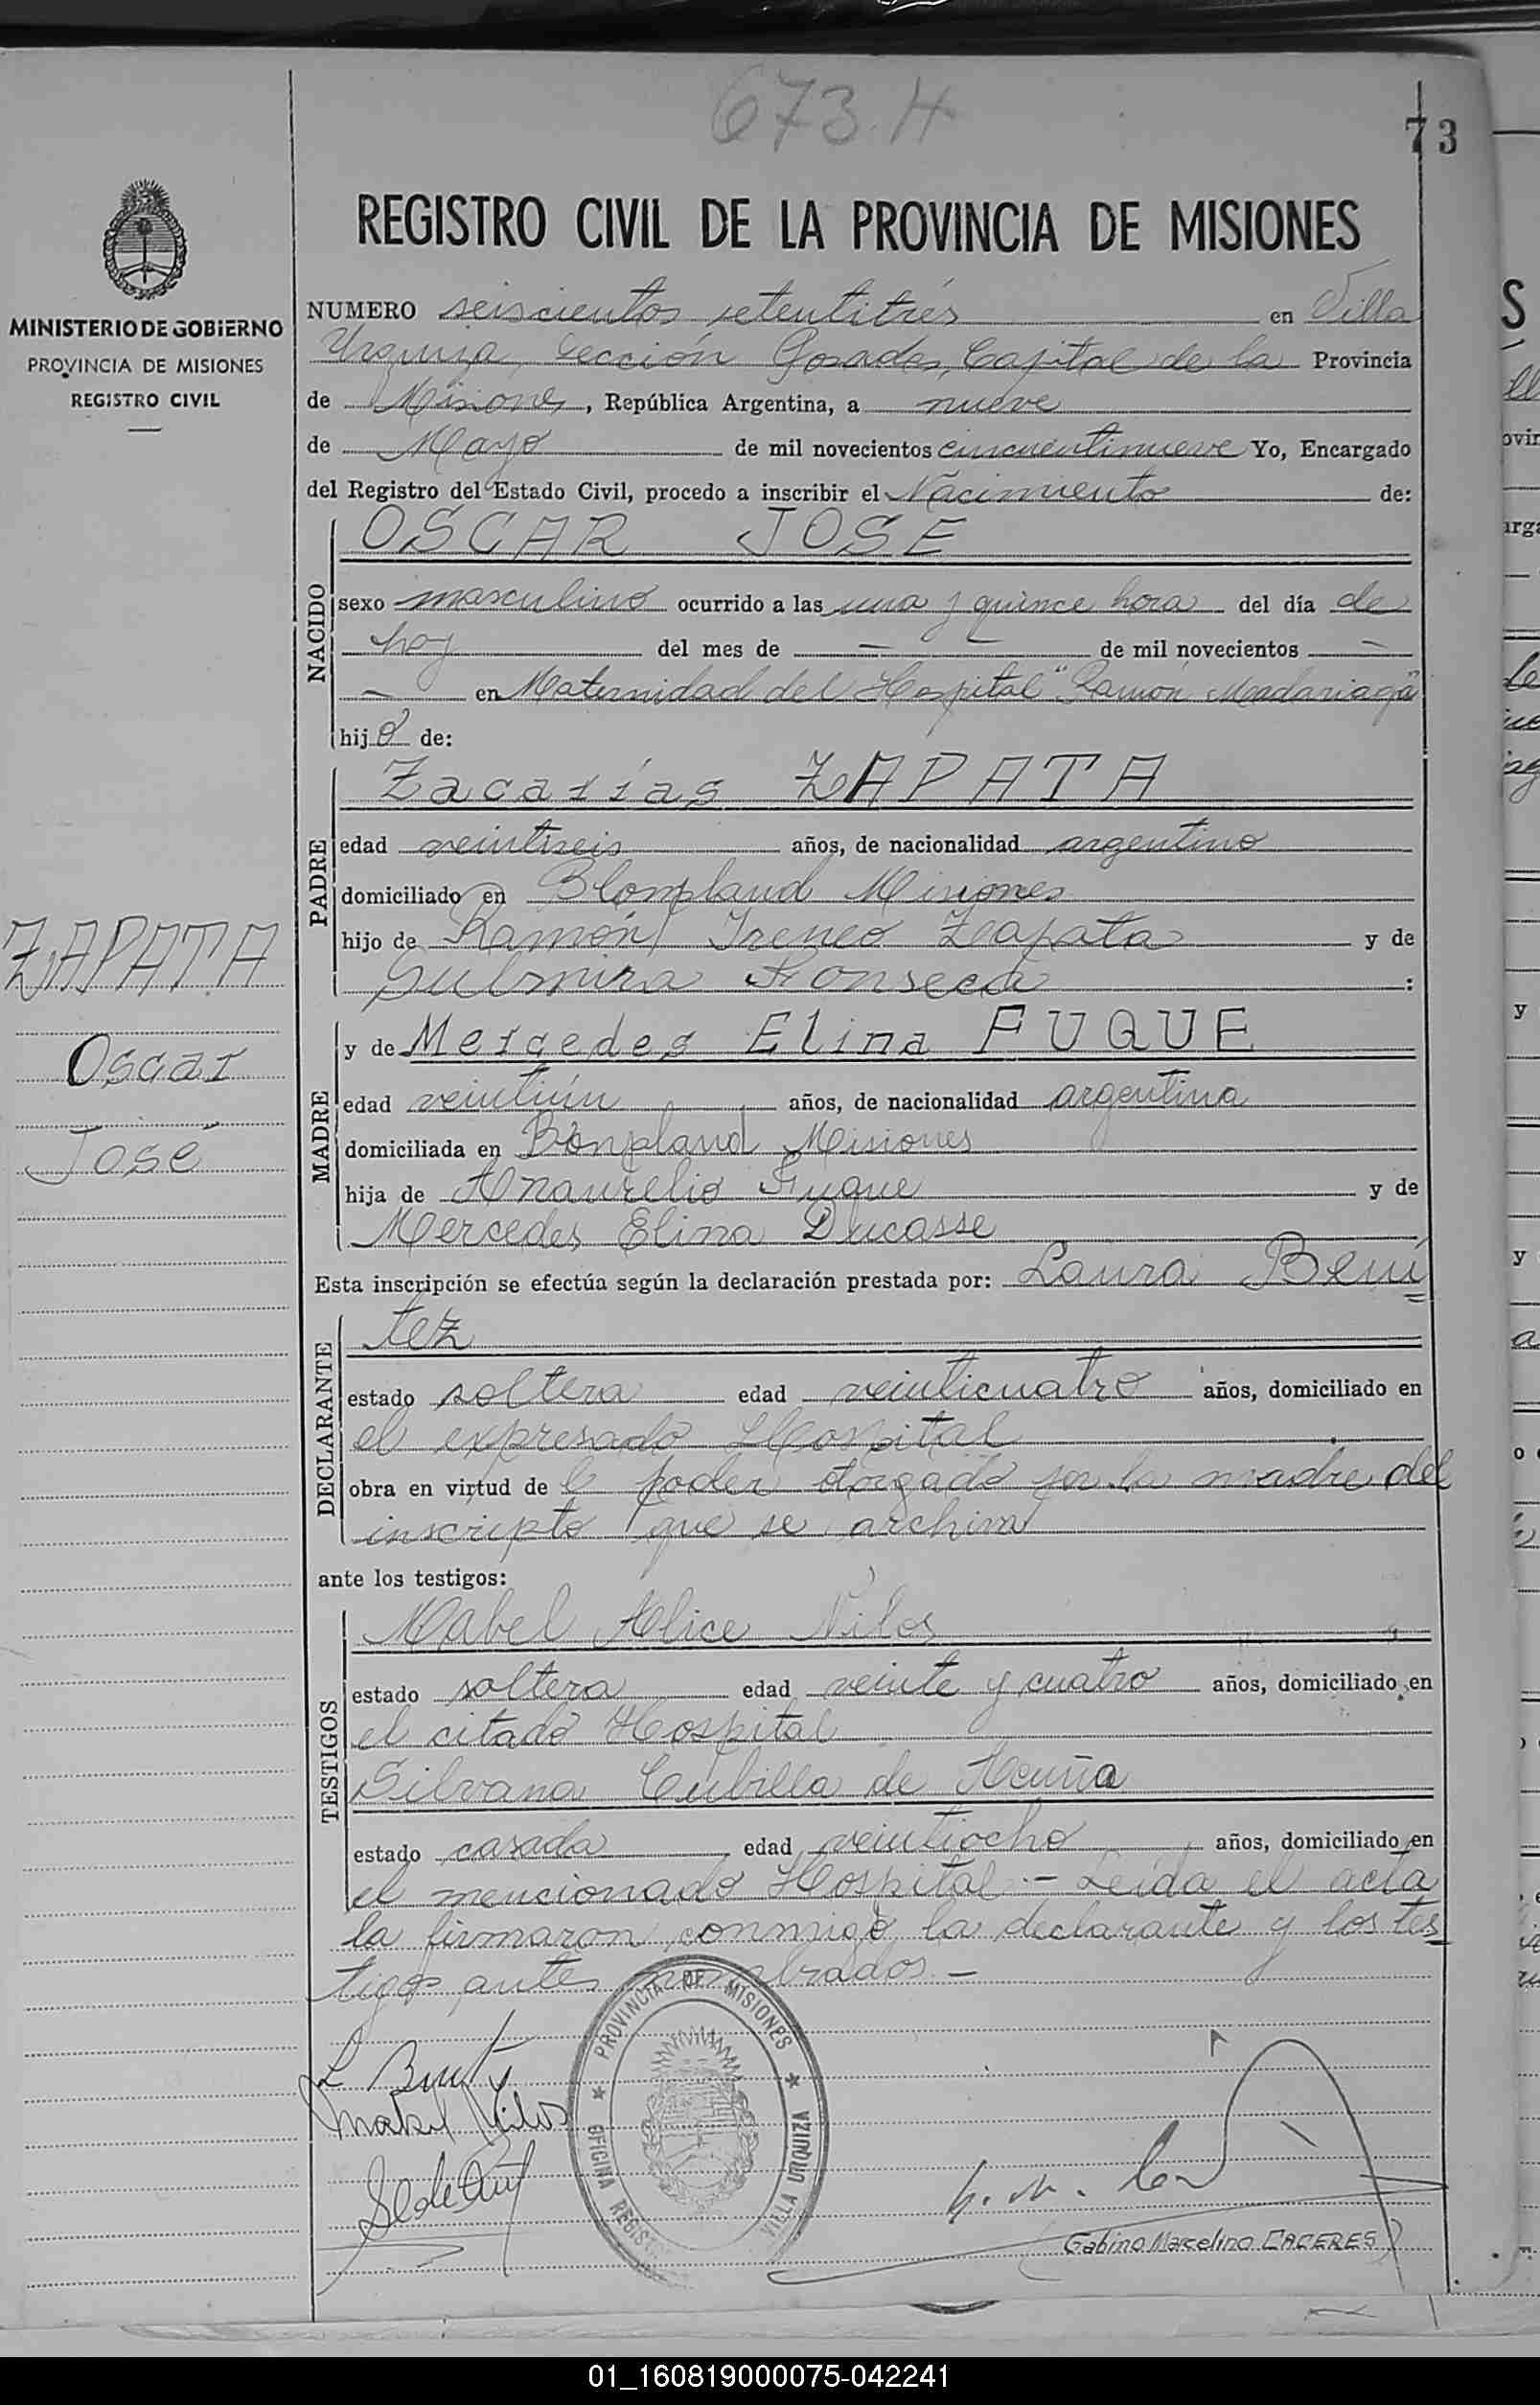 673.H
73
REGISTRO CIVIL DE LA PROVINCIA DE MISIONES
MINISTERIO DE GOBIERNO
PROVINCIA DE MISIONES
REGISTRO CIVIL
ZAPATA
Oscar
José
NUMERO seiscientos setentitrés en Villa
Urquiza, sección Posadas, Capital de la Provincia
de Misiones, República Argentina, a nueve
de Mayo de mil novecientos cincuentinueve Yo, Encargado
del Registro del Estado Civil, procedo a inscribir el Nacimiento de:
NACIDO
OSCAR JOSE
sexo masculino ocurrido a las una y quince hora del día de
hoy del mes de — — de mil novecientos —
— en Maternidad del Hospital "Ramón Madariaga"
hijo de:
PADRE
Zacarías ZAPATA
edad veintiseis años, de nacionalidad argentino
domiciliado en Blompland Misiones
hijo de Ramón Ireneo Zapata y de
Fonseca :
MADRE
y de Mercedes Elina FUQUE
edad veintiún años, de nacionalidad argentina
domiciliada en Bonpland Misiones
hija de Anaurelio Fuque y de
Mercedes Elina Ducasse
Esta inscripción se efectúa según la declaración prestada por: Laura Bení
DECLARANTE
tez
estado soltera edad veinticuatro años, domiciliado en
el expresado Hospital
obra en virtud de poder otorgado por la madre del
inscripto que se archiva
ante los testigos:
TESTIGOS
Mabel Alice Nilos
estado soltera edad veinte y cuatro años, domiciliado en
el citado Hospital
Silvana Cubilla de Acuña
estado casada edad veintiocho años, domiciliado en
el mencionado Hospital.- Leída el acta
la firmaron conmigo la declarante y los tes
tigos antes nombrados.-
PROVINCIA DE MISIONES
OFICINA REGIST VILLA URQUIZA
Mabel Nilos
Gabino Marcelino CACERES
01_160819000075-042241